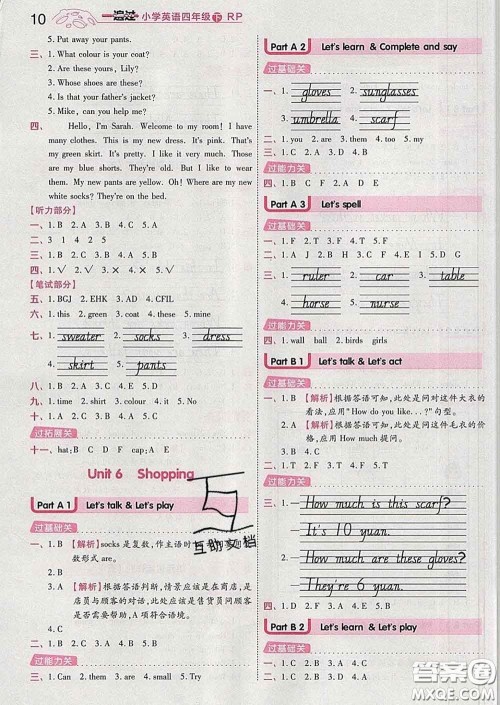 10 一遍过 小学英语四年级 下 RP
5. Put away your pants.
三、1. What colour is your coat?
2. These are yours, Lily?
3. Whose shoes are these?
4. Is that your father's jacket?
5. Mike, can you help me?
四、 Hello, I'm Sarah. Welcome to my room! I have
many clothes. This is my new dress. It's pink. That's
my green skirt. It's pretty. I like it very much. Those
are my blue shorts. They're old. These are my pants.
My new pants are yellow. Oh! Where are my new
white socks? They're on the bed.
【听力部分】
一、1. B 2. A 3. B 4. C 5. A
二、3 1 4 2 5
三、1. B 2. A 3. B 4. C 5. C
四、1. √ 2. √ 3. × 4. × 5. √
【笔试部分】
五、1. BGJ 2. EHK 3. AD 4. CFIL
六、1. this 2. coat 3. / 4. these 5. mine
七、1. sweater 2. socks 3. dress
4. skirt 5. pants
八、1. B 2. B 3. C 4. A 5. B
九、1. time 2. shirt 3. / 4. colour 5. small
十、1. B 2. A 3. C 4. B 5. A
过拓展关
十一、hat: B C F D cap: A E
Unit 6 Shopping
Part A 1 Let's talk & Let's play
过基础关
一、1. B 【解析】socks是复数，作主语时
数形式 are。
2. C
3. A 【解析】根据答语判断，情景应该是在商店，是
店员与顾客的对话，此处应是售货员问顾客
是否需要帮助，A项符合语境。
4. B
二、1. B 2. C 3. A 4. D
过能力关
三、1. Can 2. them 3. are 4. try 5. small
Part A 2 Let's learn & Complete and say
过基础关
一、1. gloves 2. sunglasses
3. umbrella 4. scarf
二、1. you 2. are 3. them 4. too 5. my
三、1. C 2. A 3. D 4. A
过能力关
四、1. B C F 2. A D E
Part A 3 Let's spell
过基础关
一、1. F 2. T 3. T 4. F 5. T
二、1. A 2. A 3. B 4. C 5. B
三、1. ruler 2. car 3. table
4. horse 5. nurse
过能力关
四、1. wall ball 2. birds girls
Part B 1 Let's talk & Let's act
过基础关
一、1. B 【解析】根据答语可知，此处是问对这件大衣的
看法，应用“How do you like...?”句型。
2. A 【解析】根据答语可知，此处是问这件毛衣的价
格，应用 How much 提问。
3. A 4. D
二、1. B 2. D 3. C 4. A
过能力关
三、1. — How much is this scarf?
— It's 10 yuan.
2. — How much are these gloves?
— They're 6 yuan.
四、1. D 2. F 3. C 4. A 5. B
Part B 2 Let's learn & Let's play
过基础关
一、1. C 2. B 3. A 4. D
二、1. C 2. A 3. C 4. B
互助文档
答案圈
MXQE.COM